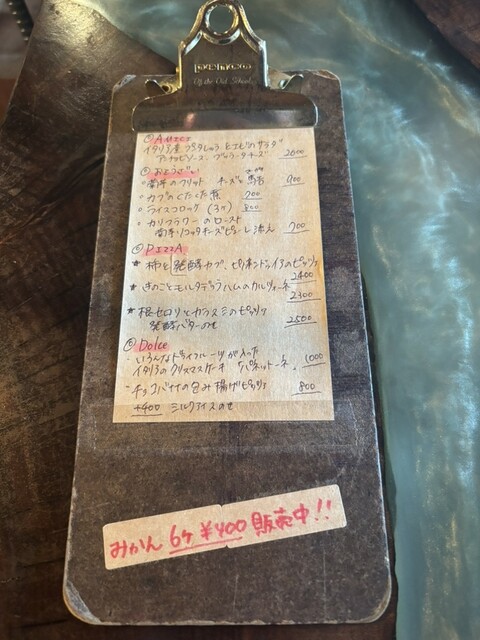 イタリア産 とエビのサラダ
アンチョビソース、ブッラータチーズ 2600
おとうざい
里芋のフリット チーズと 900
カブのくたくた煮 700
ライスコロッケ (3ヶ) 800
カリフラワーのロースト
リコッタチーズピューレ添え 700
PIZZA
* 柿と発酵カブ、 のピッツァ
2400
* きのことモルタデッラハムのカルツォーネ
2300
* 根セロリとカラスミのピッツァ
発酵バターのせ 2500
Dolce
・いろんなドライフルーツが入った
イタリアのクリスマスケーキ「パネットーネ」 1000
・チョコバナナの包み揚げピッツァ 800
+400 ミルクアイスのせ
みかん 6ヶ ¥400 販売中!!